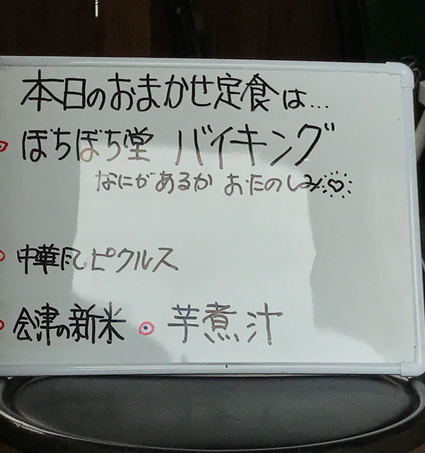 本日のおまかせ定食は...
ぼちぼち堂 バイキング
なにがあるか おたのしみ♡
中華風ピクルス
会津の新米 芋煮汁